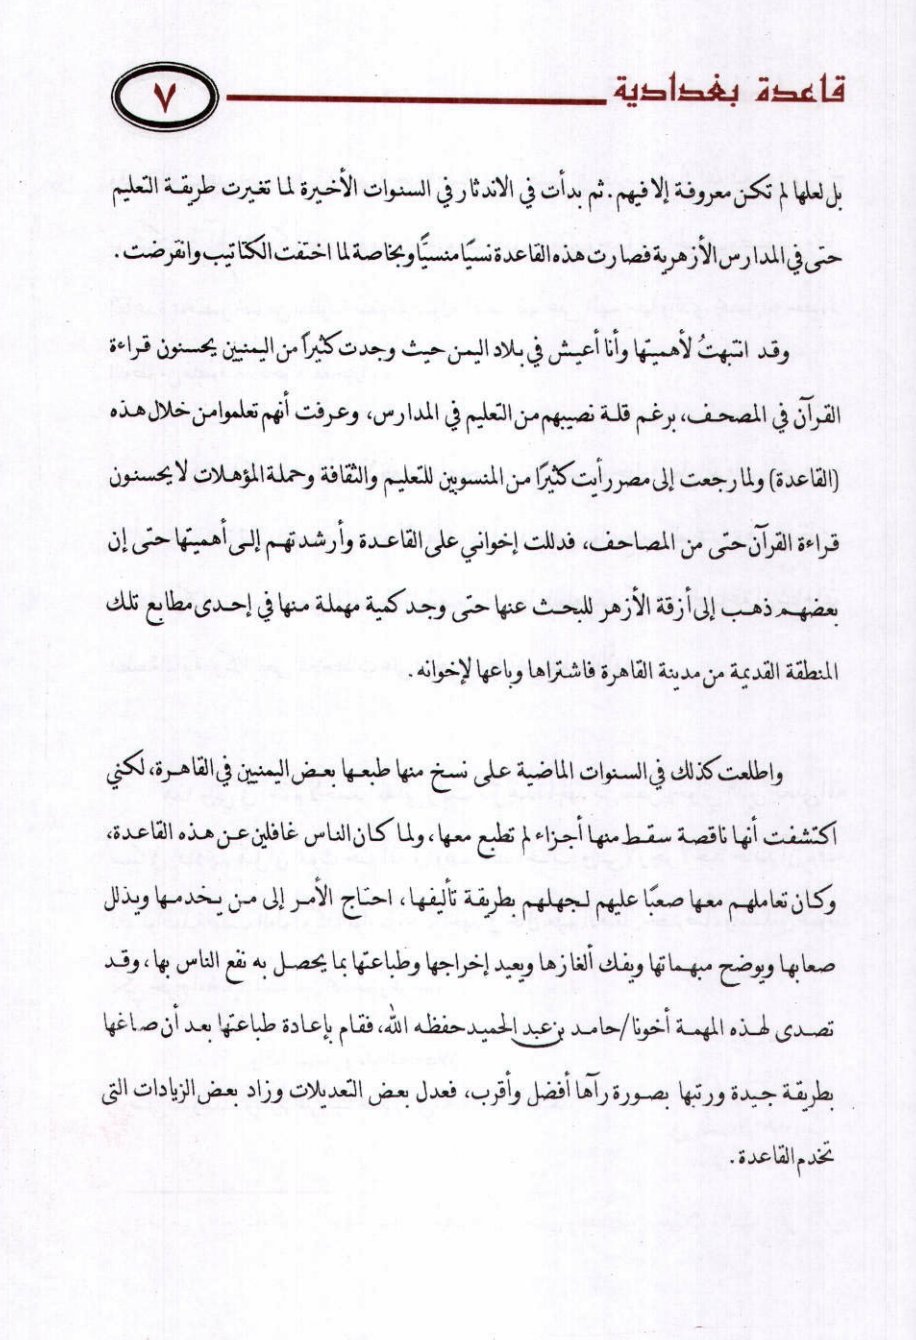 قاعدة بغدادية
٧
بل لعلها لم تكن معروفة إلا فيهم . ثم بدأت في الاندثار في السنوات الأخيرة لما تغيرت طريقة التعليم
حتى في المدارس الأزهرية فصارت هذه القاعدة نسيًا منسيًّا وبخاصة لما اختفت الكتاتيب وانقرضت .
وقد انتبهتُ لأهميتها وأنا أعيش في بلاد اليمن حيث وجدت كثيراً من اليمنيين يحسنون قراءة
القرآن في المصحف، برغم قلة نصيبهم من التعليم في المدارس، وعرفت أنهم تعلموا من خلال هذه
(القاعدة) ولما رجعت إلى مصر رأيت كثيرًا من المنسوبين للتعليم والثقافة وحملة المؤهلات لا يحسنون
قراءة القرآن حتى من المصاحف، فدللت إخواني على القاعدة وأرشدتهم إلى أهميتها حتى إن
بعضهم ذهب إلى أزقة الأزهر للبحث عنها حتى وجد كمية مهملة منها في إحدى مطابع تلك
المنطقة القديمة من مدينة القاهرة فاشتراها وباعها لإخوانه .
واطلعت كذلك في السنوات الماضية على نسخ منها طبعها بعض اليمنيين في القاهرة، لكني
اكتشفت أنها ناقصة سقط منها أجزاء لم تطبع معها، ولما كان الناس غافلين عن هذه القاعدة،
وكان تعاملهم معها صعبًا عليهم لجهلهم بطريقة تأليفها، احتاج الأمر إلى من يخدمها ويذلل
صعابها ويوضح مبهماتها ويفك ألغازها ويعيد إخراجها وطباعتها بما يحصل به نفع الناس بها، وقد
تصدى لهذه المهمة أخونا/حامد بن عبد الحميد حفظه الله، فقام بإعادة طباعتها بعد أن صاغها
بطريقة جيدة ورتبها بصورة رآها أفضل وأقرب، فعدل بعض التعديلات وزاد بعض الزيادات التى
تخدم القاعدة .